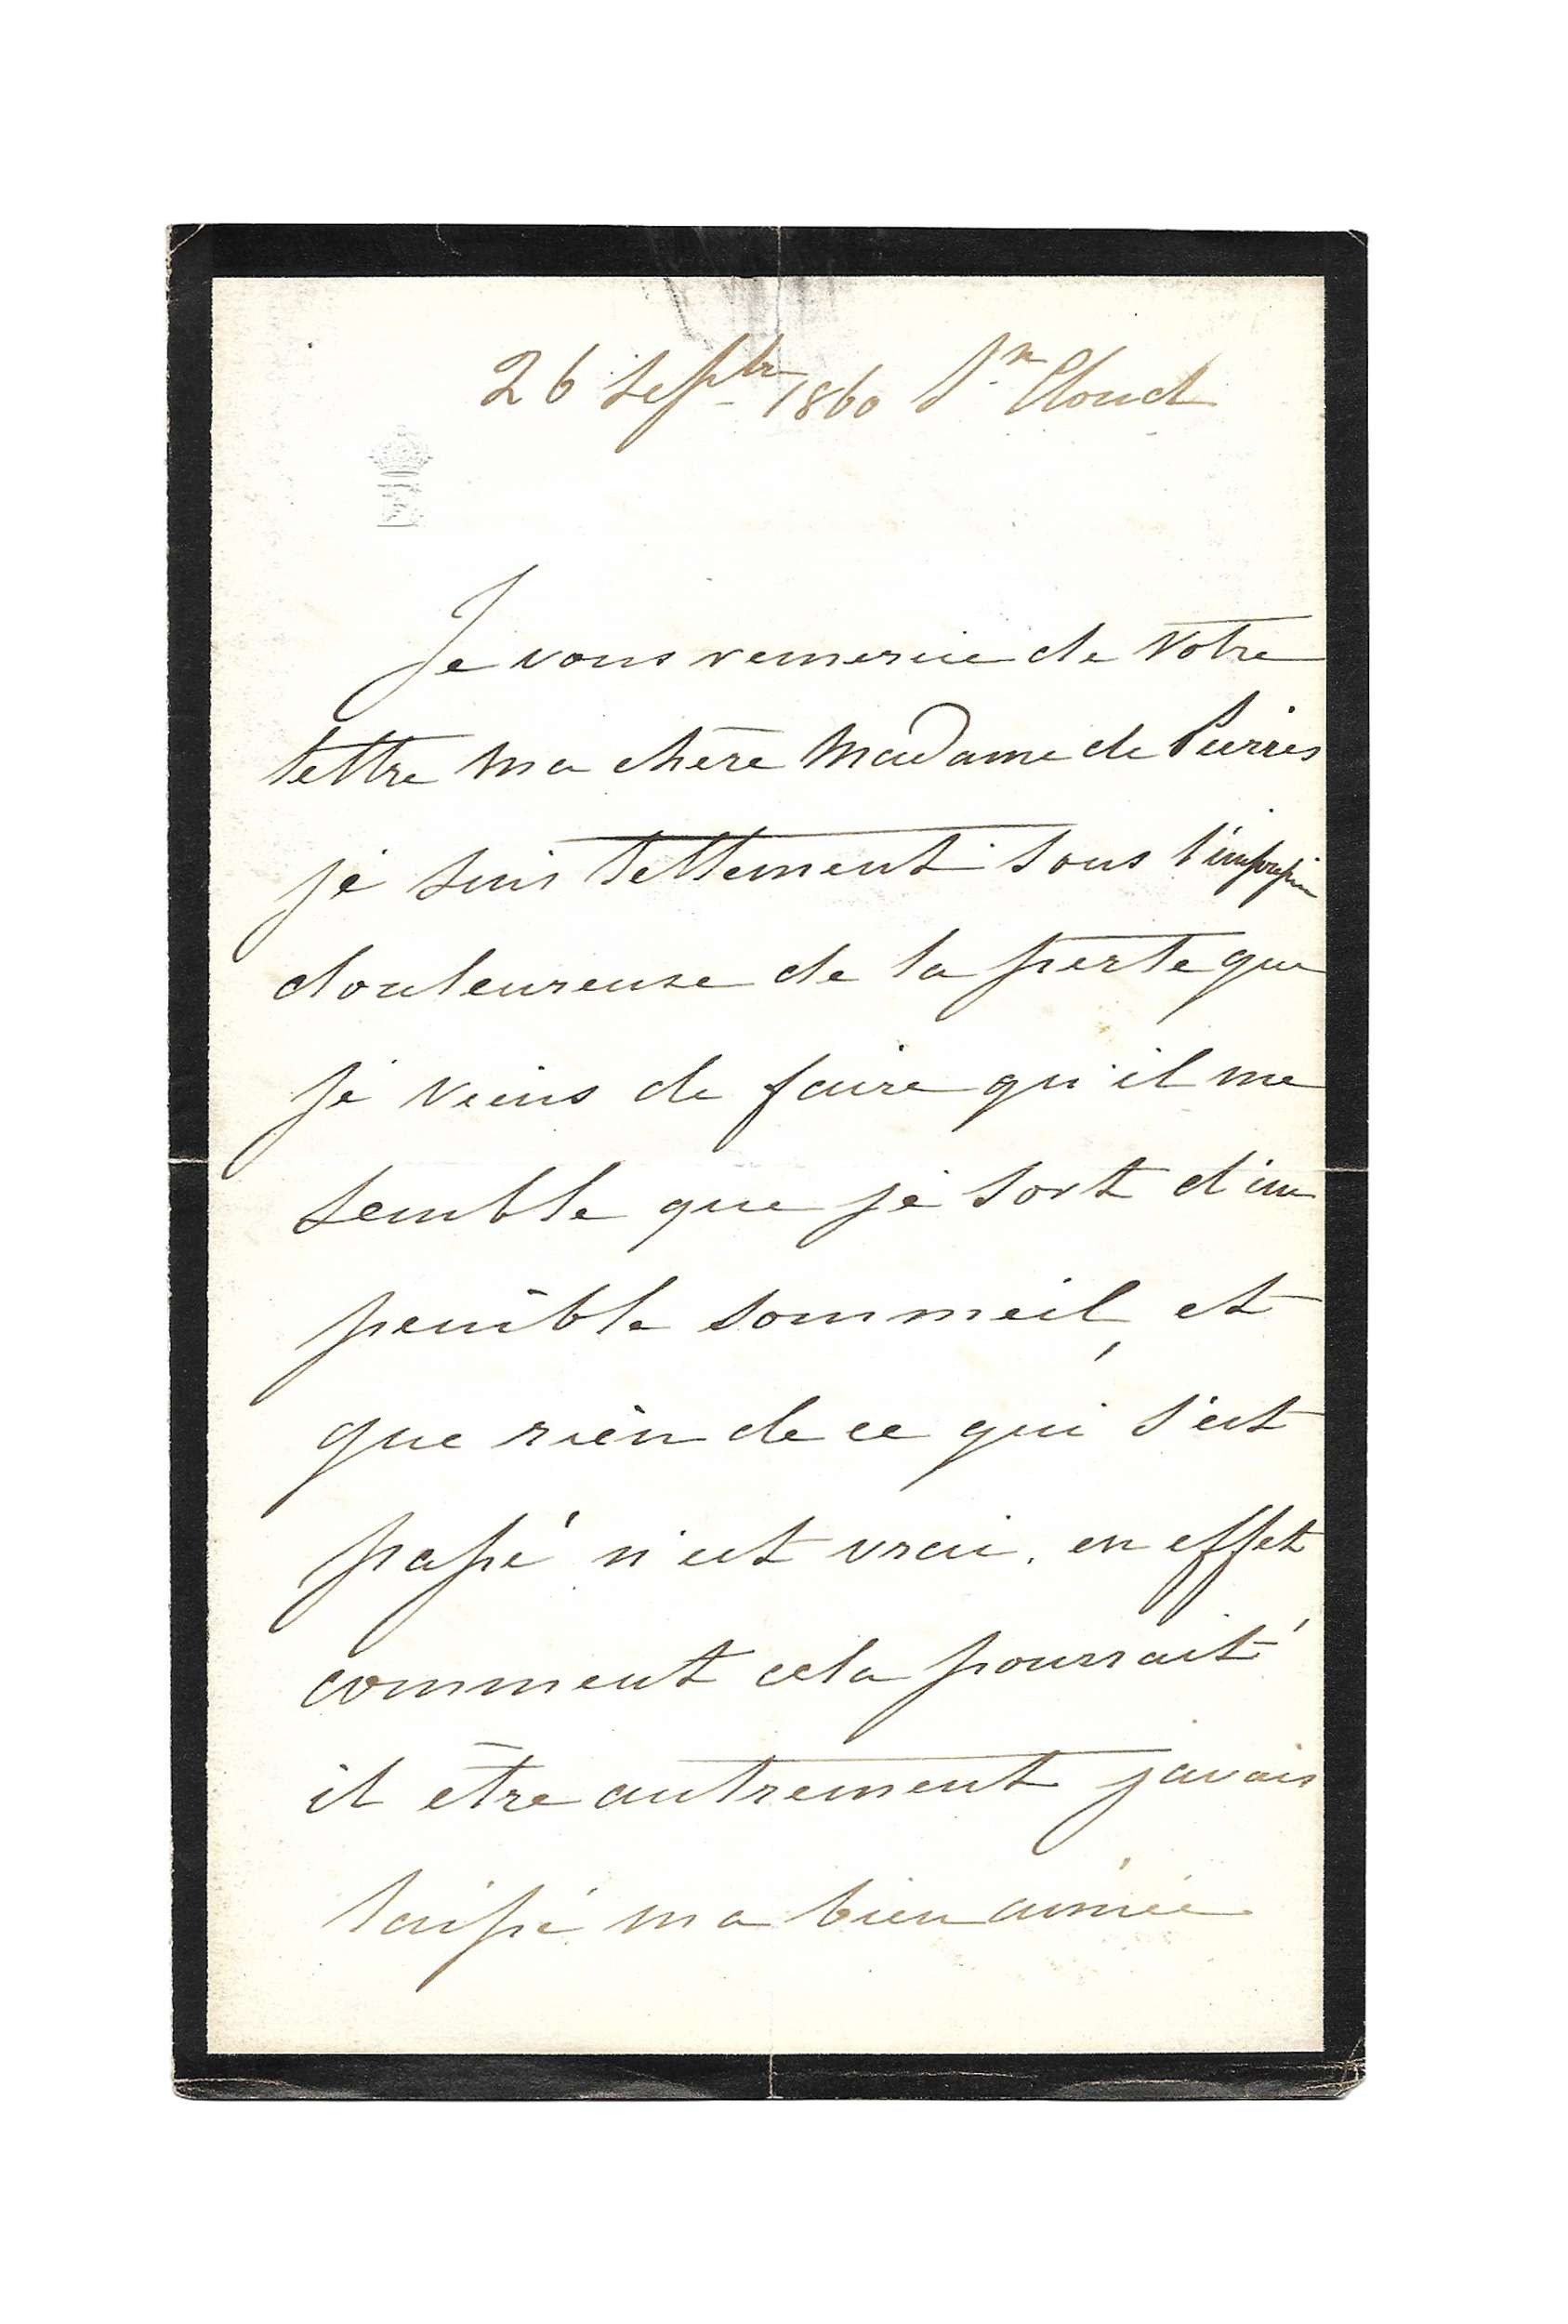 26 Septbre 1860 St Cloud
Je vous remercie de votre
lettre ma chère Madame de Pierres
je suis tellement sous l'impression
douleureuse de la perte que
je viens de faire qu'il me
semble que je sort d'un
penible sommeil, et
que rien de ce qui s'est
passé n'est vrai. en effet
comment cela pourrait
il être autrement javais
laissé ma bien aimée